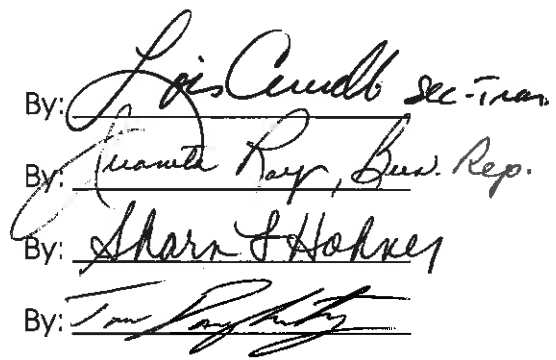 By: Lois Cundb Sec-Treas
By: Juanita Ray, Bus. Rep.
By: Sharn L Hohney
By: Tom Dougherty